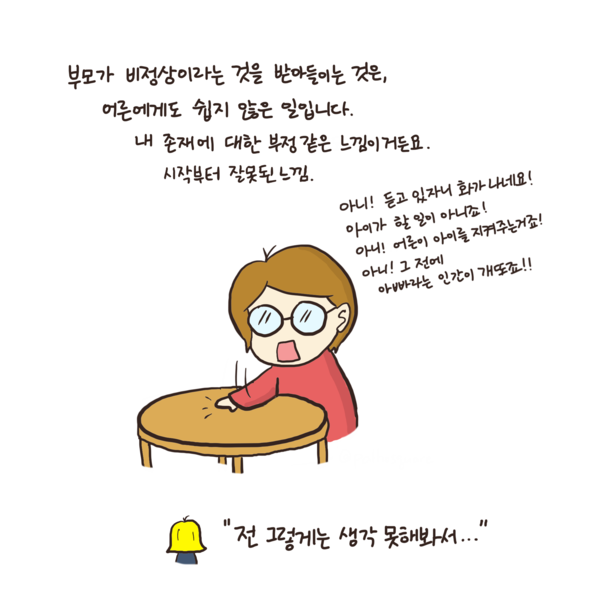 부모가 비정상이라는 것을 받아들이는 것은,
어른에게도 쉽지 않은 일입니다.
내 존재에 대한 부정같은 느낌이거든요.
시작부터 잘못된 느낌.
아니! 듣고 있자니 화가 나네요!
아이가 할 일이 아니죠!
아니! 어른이 아이를 지켜주는거죠!
아니! 그 전에
아빠라는 인간이 개또죠!!
"전 그렇게는 생각 못해봐서..."